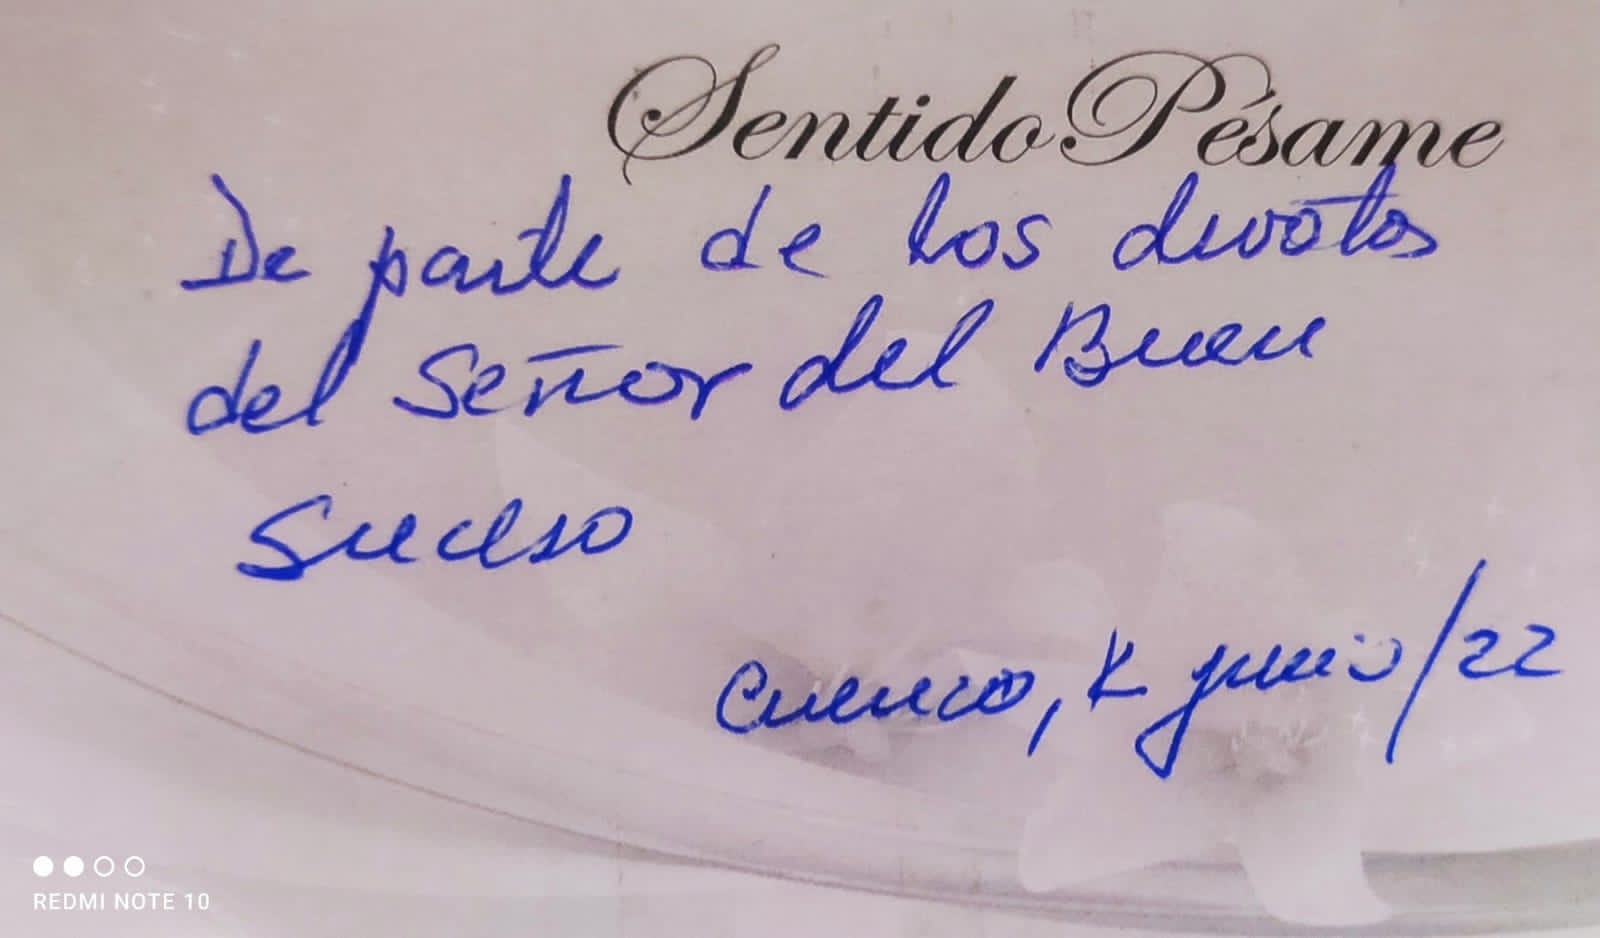 Sentido Pésame
De parte de los devotos
del Señor del Buen
Suceso
Cuenca, junio/22
REDMI NOTE 10